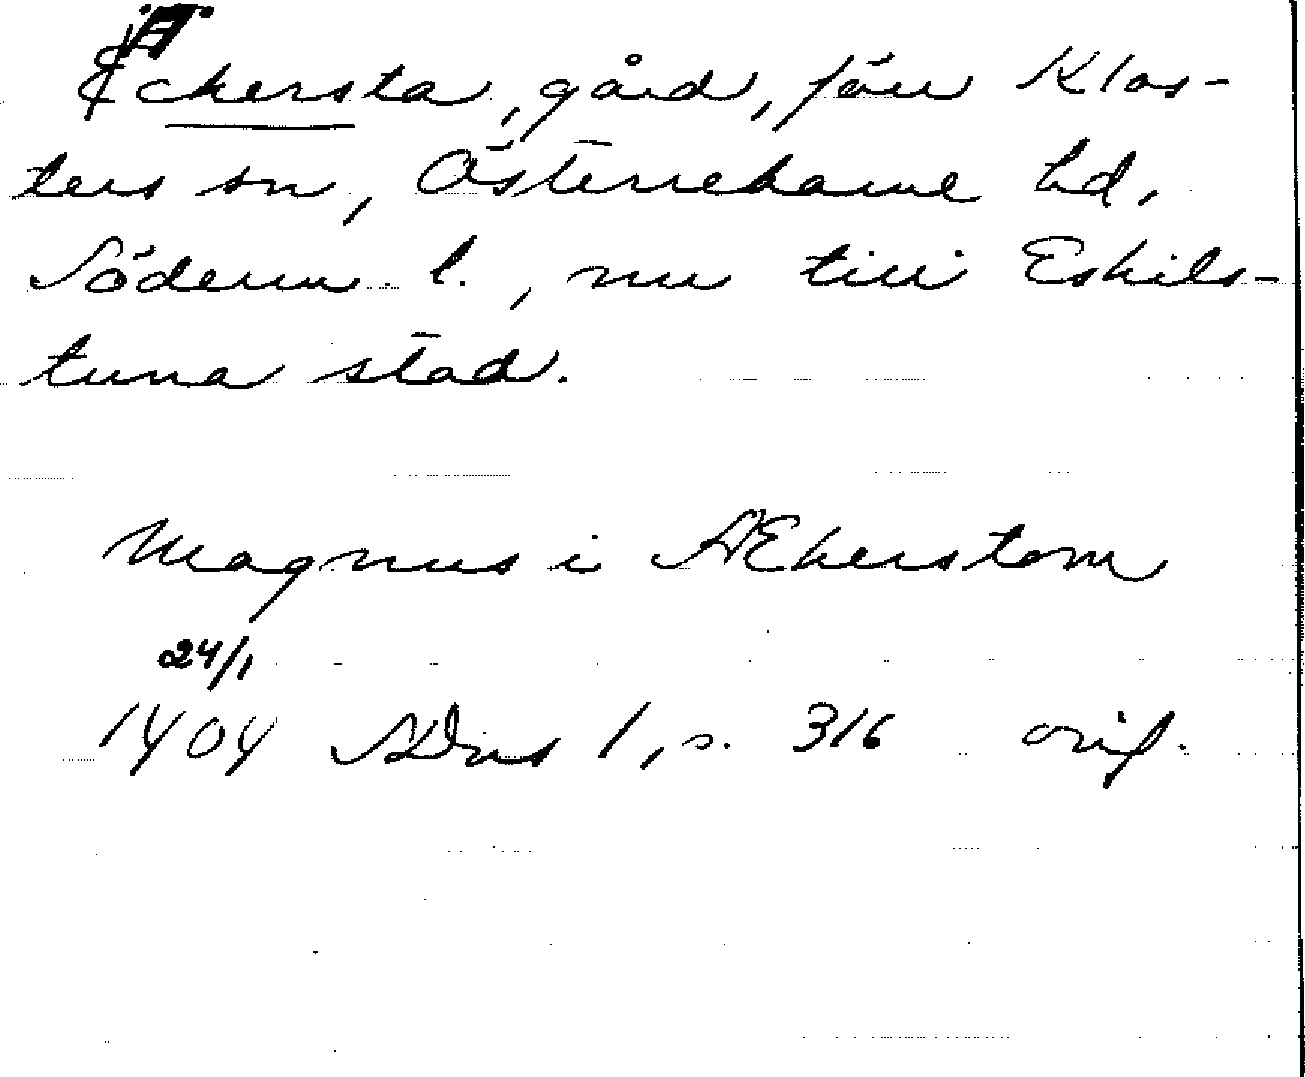 Äckersta, gård, förr Klos-
ters sn, Österrekarne hd,
Söderm. l., nu till Eskils-
tuna stad.
Magnus i Ækerstom
24/1
1404 SDns 1, s. 316 orig.